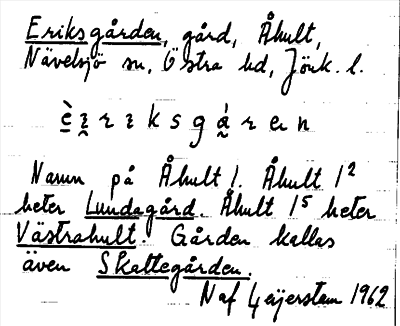 Eriksgården, gård, Åhult,
Nävelsjö sn, Östra hd, Jönk. l.
Namn på Åhult 1. Åhult 1²
heter Lundagård. Åhult 1⁵ heter
Västrahult. Gården kallas
även Skattegården.
Naf 1962